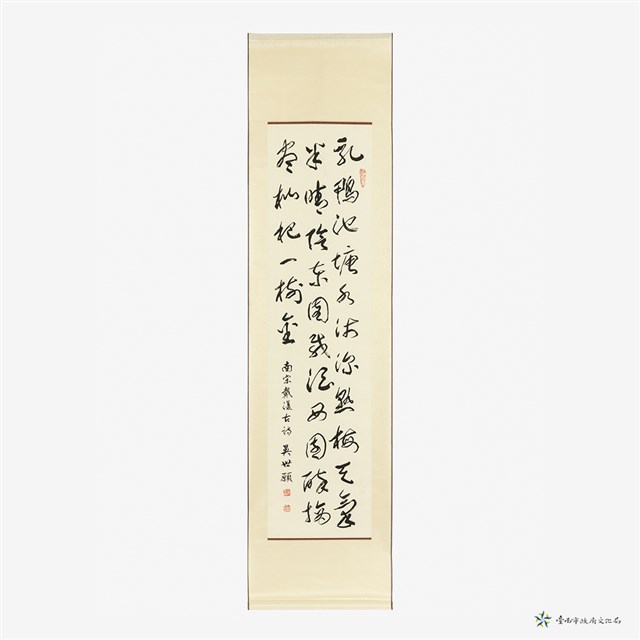 乳鴨池塘水淺深熟梅天氣
半晴陰東園載酒西園醉摘
盡枇杷一樹金
南宋戴復古詩 吳世願
臺南市政府文化局